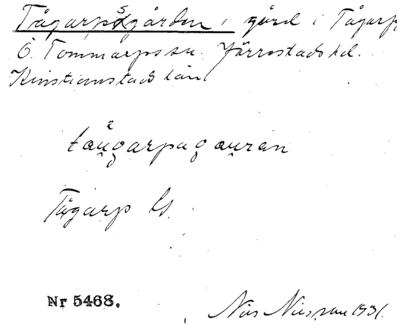 Tågarpsgården, gård i Tågarp,
Ö. Tommarps sn. Järrestads hd.
Kristianstads län.
Tågarp ls.
Nr 5468.
Nils Nilsson 1931.